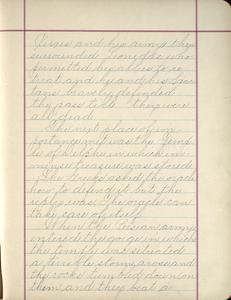 Xerxes and his army then
surrounded Leonidas who
permitted his allies to re
treat and he and his Spar
tans bravely defended
the pass till they were
all dead.
The next place of im
portance met was the Temp
le of Delphi in which im
mense treasures was stored
The Greeks asked the oracle
how to defend it but the
reply was: The oracle can
take care of itself.
When the Persian army
entered the gorge in which
the temple was situated
a terrible storm arose and
the rocks tumbled down on
them and they beat a